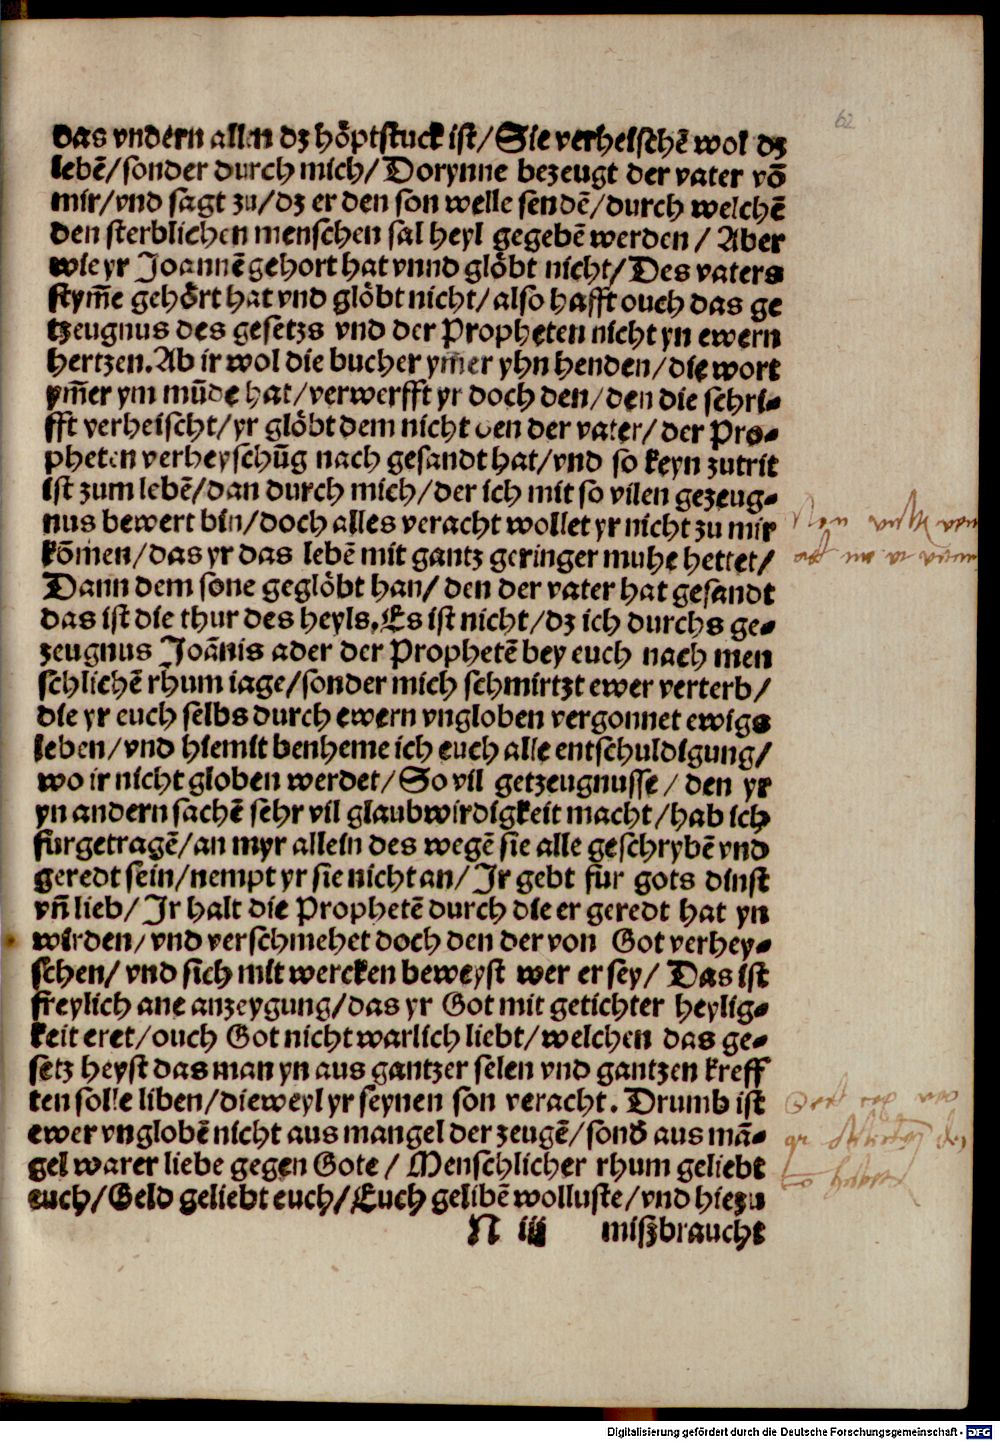 62
das vndern allen dz hoͤptstuck ist/ Sie verheischẽ wol dz
lebẽ/ sonder durch mich/ Dorynne bezeugt der vater võ
mir/ vnd sagt zu/ dz er den son welle sendẽ/ durch welchẽ
den sterblichen menschen sal heyl gegebẽ werden / Aber
wie yr Joannẽ gehort hat vnnd gloͤbt nicht/ Des vaters
stym̃e gehoͤrt hat vnd gloͤbt nicht/ also hafft ouch das ge
tzeugnus des gesetzs vnd der Propheten nicht yn ewern
hertzen. Ab ir wol die bucher ym̃er yhn henden/ die wort
ym̃er ym mũde hat/ verwerfft yr doch den/ den die schri⸗
fft verheischt/ yr gloͤbt dem nicht den der vater/ der Pro⸗
pheten verheyschũg nach gesandt hat/ vnd so keyn zutrit
ist zum lebẽ/ dan durch mich/ der ich mit so vilen gezeug⸗
nus bewert bin/ doch alles veracht wollet yr nicht zu mir
kõmen/ das yr das lebẽ mit gantz geringer muhe hettet/
Dann dem sone gegloͤbt han/ den der vater hat gesandt
das ist die thur des heyls. Es ist nicht/ dz ich durchs ge⸗
zeugnus Joãnis ader der Prophetẽ bey euch nach men
schlichẽ rhum iage/ sonder mich schmirtzt ewer verterb/
die yr euch selbs durch ewern vngloben vergonnet ewigs
leben/ vnd hiemit benheme ich euch alle entschuldigung/
wo ir nicht globen werdet/ So vil getzeugnusse / den yr
yn andern sachẽ sehr vil glaubwirdigkeit macht/ hab ich
furgetragẽ/ an myr allein des wegẽ sie alle geschrybẽ vnd
geredt sein/ nempt yr sie nicht an/ Ir gebt fur gots dinst
vñ lieb/ Ir halt die Prophetẽ durch die er geredt hat yn
wirden/ vnd verschmehet doch den der von Got verhey⸗
schen/ vnd sich mit wercken beweyst wer er sey/ Das ist
freylich ane anzeygung/ das yr Got mit getichter heylig⸗
keit eret/ ouch Got nicht warlich liebt/ welchen das ge⸗
setz heyst das man yn aus gantzer selen vnd gantzen kreff
ten solle liben/ dieweyl yr seynen son veracht. Drumb ist
ewer vnglobẽ nicht aus mangel der zeugẽ/ sond̃ aus mã⸗
gel warer liebe gegen Gote / Menschlicher rhum geliebt
euch/ Geld geliebt euch/ Euch gelibẽ wolluste/ vnd hiezu
N iij miszbraucht
Digitalisierung gefördert durch die Deutsche Forschungsgemeinschaft - DFG